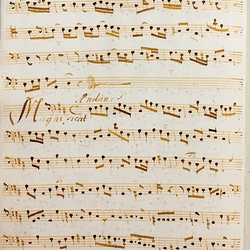 Andante
Magnificat